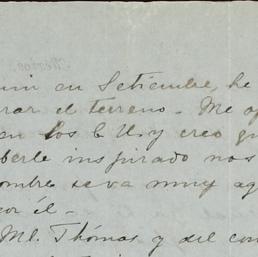 en Setiembre, he
rar el terreno. - Me
en los E. U. y creo
berle inspirado nos
ombre se va muy ag
or él. -
Ml. Thómas y del con